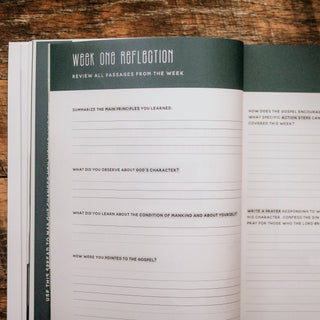 WEEK ONE REFLECTION
REVIEW ALL PASSAGES FROM THE WEEK
SUMMARIZE THE MAIN PRINCIPLES YOU LEARNED.
WHAT DID YOU OBSERVE ABOUT GOD'S CHARACTER?
WHAT DID YOU LEARN ABOUT THE CONDITION OF MANKIND AND ABOUT YOURSELF?
HOW WERE YOU POINTED TO THE GOSPEL?
HOW DOES THE GOSPEL ENCOURAG
WHAT SPECIFIC ACTION STEPS CAN
COVERED THIS WEEK?
WRITE A PRAYER RESPONDING TO W
HIS CHARACTER, CONFESS THE SIN
PRAY FOR THOSE WHO THE LORD
USE THIS SPREAD TO